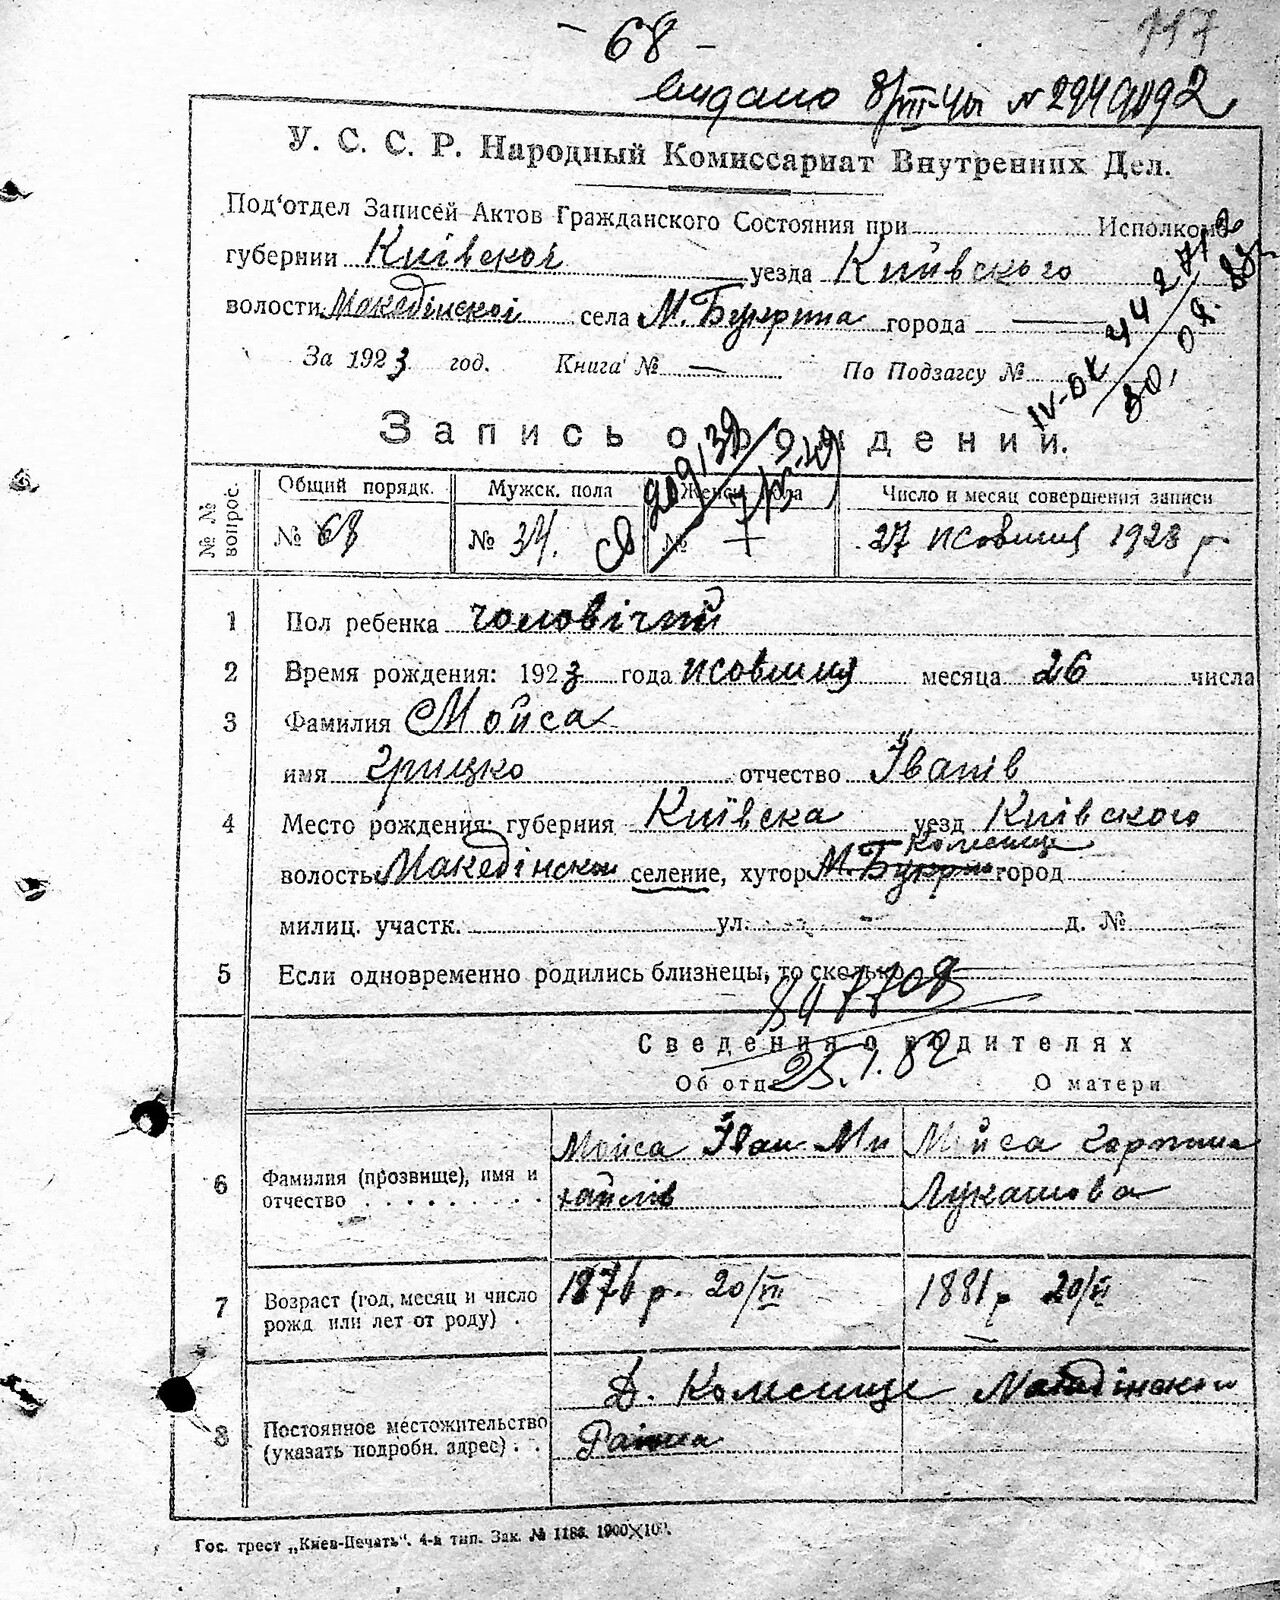 - 68 -
117
видано 8/VII-41 № 2949092
У. С. С. Р. Народный Комиссариат Внутренних Дел.
Под'отдел Записей Актов Гражданского Состояния при Исполкоме
губернии Київскої уезда Київського
волости Македінскої села М. Букрина города —
За 1923 год. Книга № — По Подзагсу №
Запись о рождении.
№ № вопрос.
Общий порядк. Мужск. пола Женск. пола Число и месяц совершения записи
№ 68 № 34. № 27 жовтня 1923 р.
1 Пол ребенка чоловічий
2 Время рождения: 1923 года жовтня месяца 26 числа
3 Фамилия Мойса
имя Грицко отчество Іванів
4 Место рождения: губерния Київска уезд Київского
Колесище
волость Македінскої селение, хутор М. Букрин город
милиц. участк. ул. - д. №
5 Если одновременно родились близнецы, то сколько
25.1.82
Сведения о родителях
Об отце О матери
6 Фамилия (прозвище), имя и отчество
Мойса Іван Ми
хайлів
Мойса Горпина
Лукашова
7 Возраст (год, месяц и число рожд или лет от роду) .
1876 р. 20/VII 1881 р 20/VI
8 Постоянное местожительство (указать подробн. адрес) . .
Д. Колесище Македінского
Раіона
Гос. трест „Киев-Печать". 4-я тип. Зак. № 1186. 1900×100.